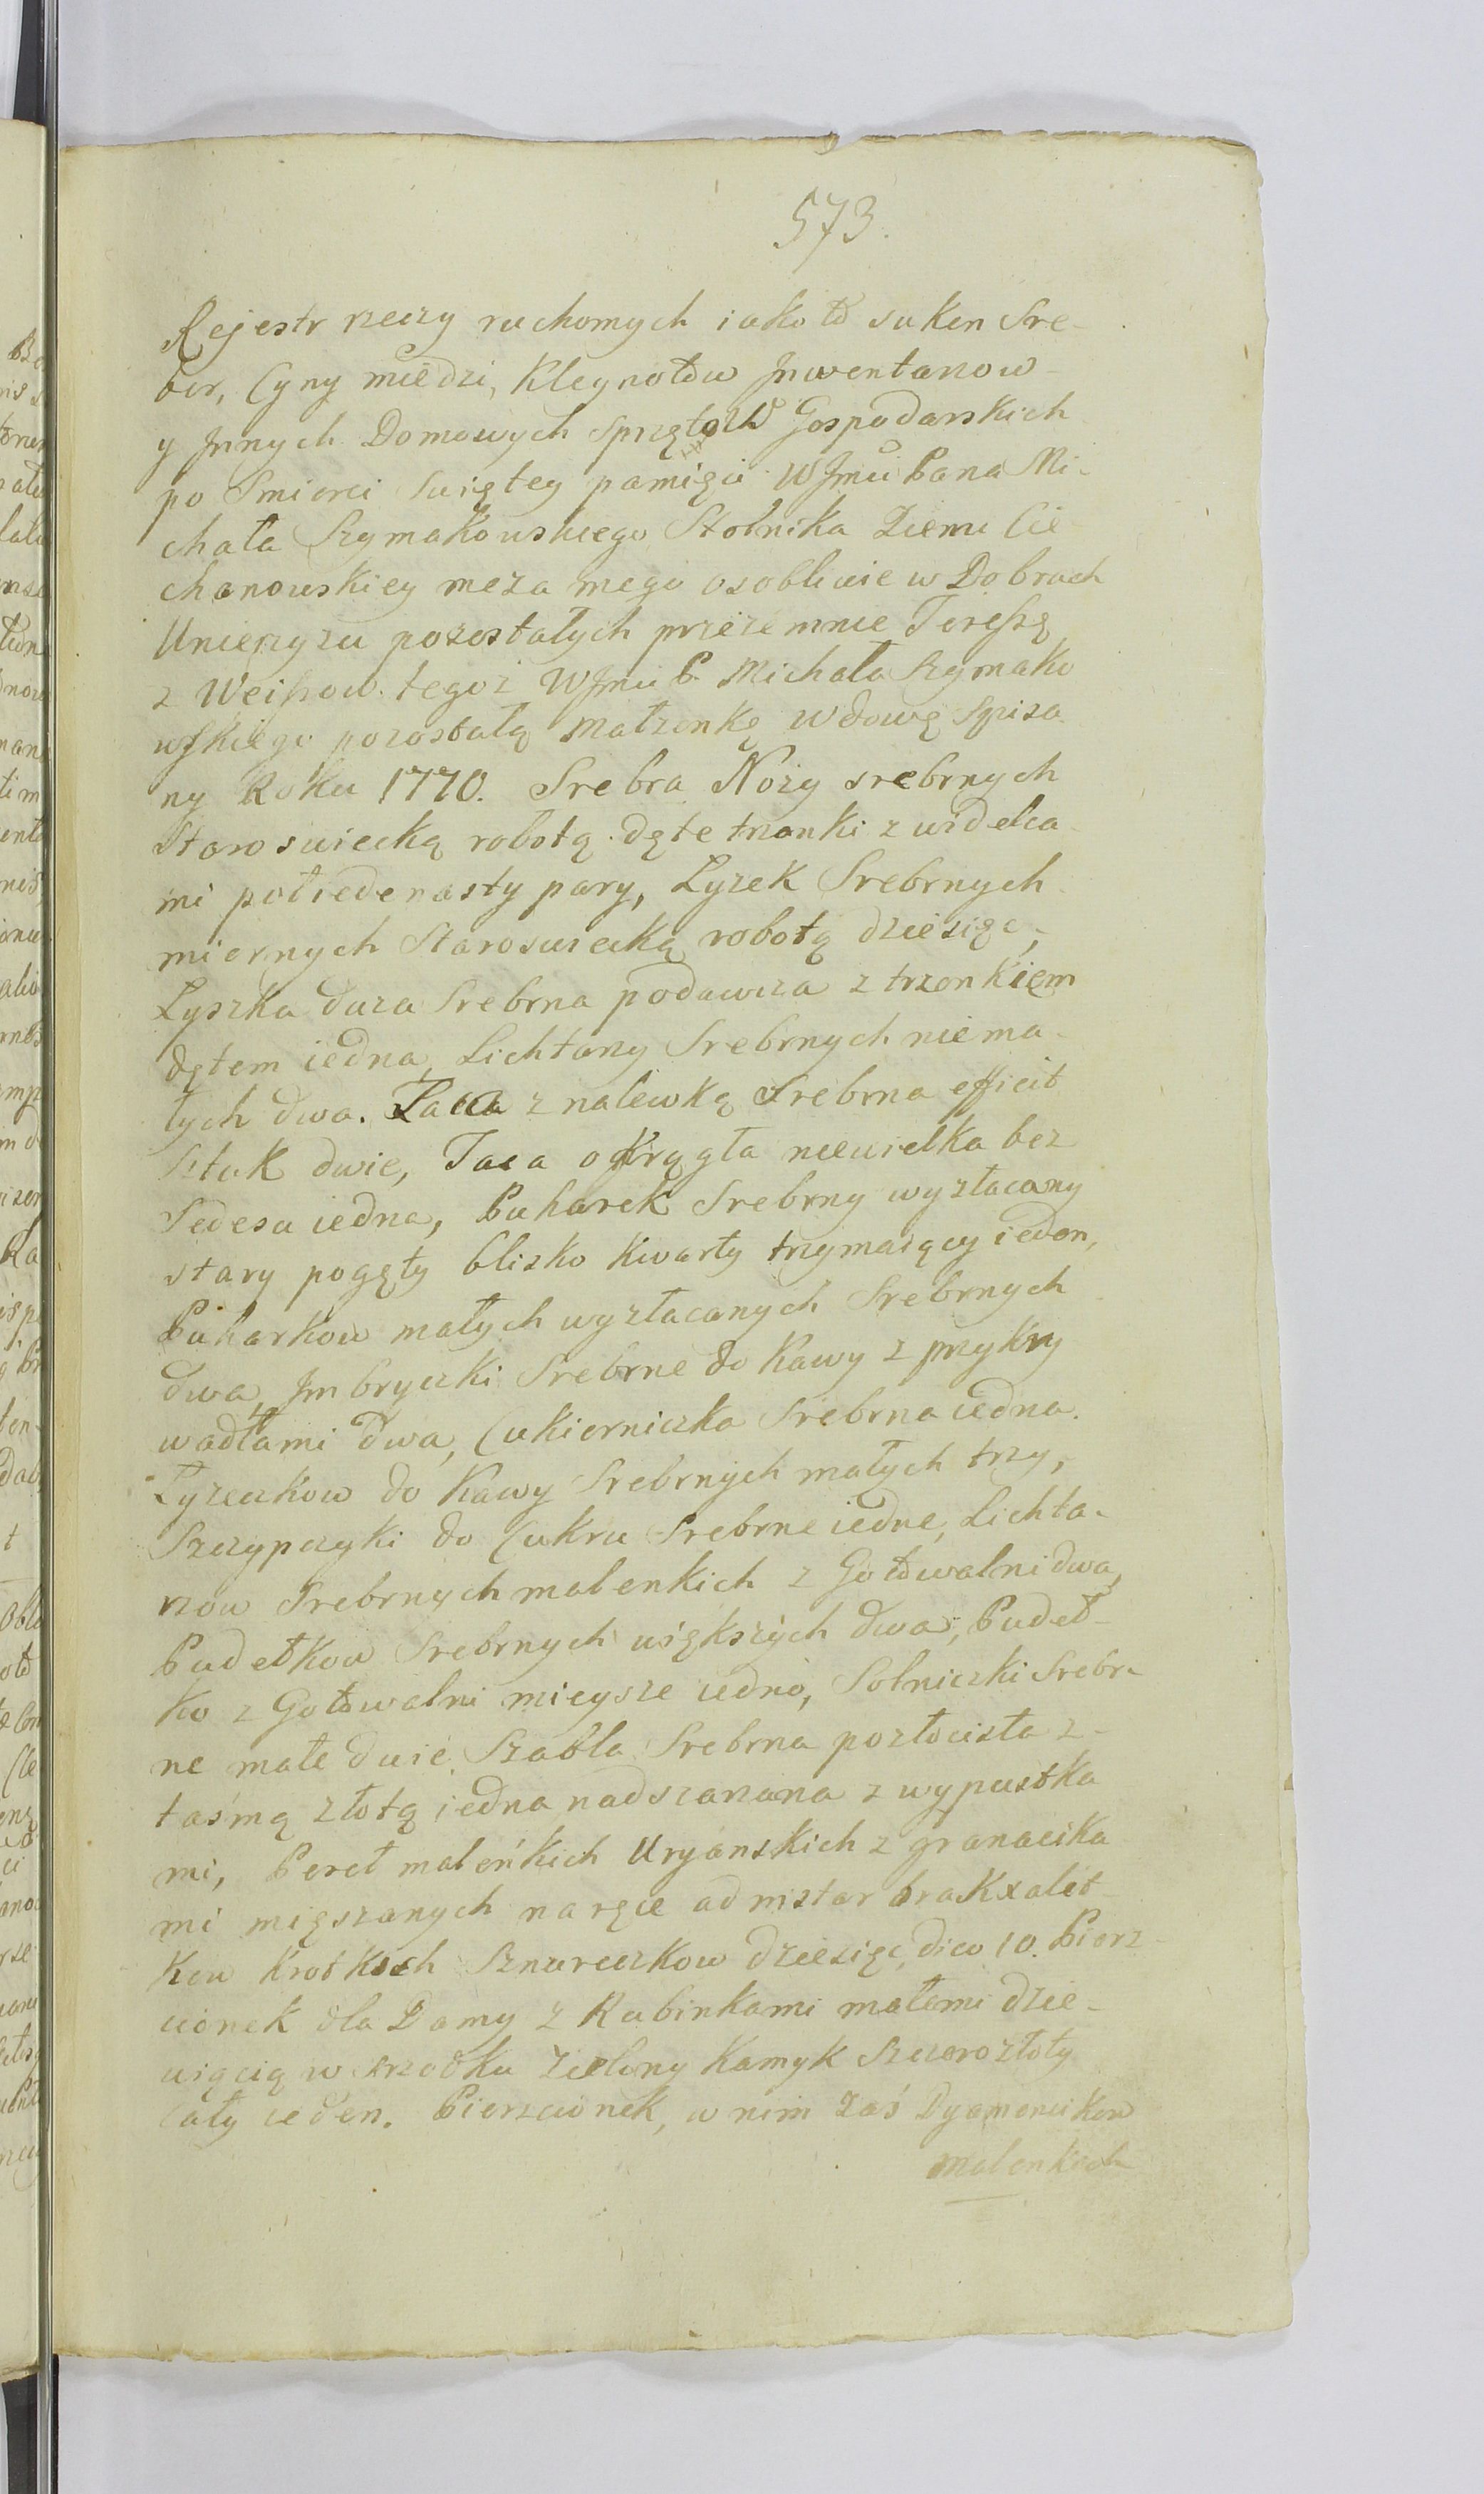 573.
Rejestr rzeczy ruchomych iako to suken Sre-
ber, Cyny miedzi, Kleynotow Jnwentarzow
y Jnnych Domowych Sprzętow Gospodarskich
po Smierci Swiętey pamięci WJmci Pana Mi-
chała Szymakowskiego Stolnika Ziemi Cie
chanowskiey męza mego osobliwie w Dobrach
Unierzyzu pozostałych przeze mnie Teressę
z Weissow tegoż WJmci P. Michała Szymako
wskiego pozostałą Małżonkę wdowę Spisa
ny Roku 1770. Srebra Noży srebrnych
Staroswiecką robotą dęte trzonki z widelca
mi poł iedenasty pary, Łyżek Srebrnych
miernych Staroswiecką robotą dziesięc,
Łyszka duza Srebrna podawcza z trzonkiem
dętem iedna, Lichtarzy Srebrnych niema-
łych dwa. Taca z nalewką Srebrna efficit
Sztuk dwie, Taca okrągła niewielka bez
Sedesu iedna, Puharek Srebrny wyzłacany
stary pogęty blisko Kwarty trzymaiący ieden,
Puharkow małych wyzłacanych Srebrnych
dwa, Jmbryczki Srebrne do Kawy z przykry
wadłami dwa, Cukierniczka Srebrna iedna.
Łyzeczkow do Kawy Srebrnych małych trzy,
Szczypczyki do Cukru Srebrne iedne, Lichta-
rzow Srebrnych malenkich z Gotowalni dwa,
Pudełkow Srebrnych większych dwa, Pudeł-
ko z Gotowalni mieysze iedno, Solniczki Srebr-
ne małe dwie. Szabla Srebrna pozłocista z
taśmą złotą iedna nadszarzana z wypustka
mi, Pereł maleńkich Uryanskich z granacika
mi mięszanych na ręce ad instar
kow krotkich Sznureczkow dziesięc, dico 10. Pierz
cionek dla Damy z Rubinkami małemi dzie-
więcią w srzodku zielony Kamyk Szczerozłoty
cały ieden. Pierzcionek, w nim zaś Dyamencikow
malenkich